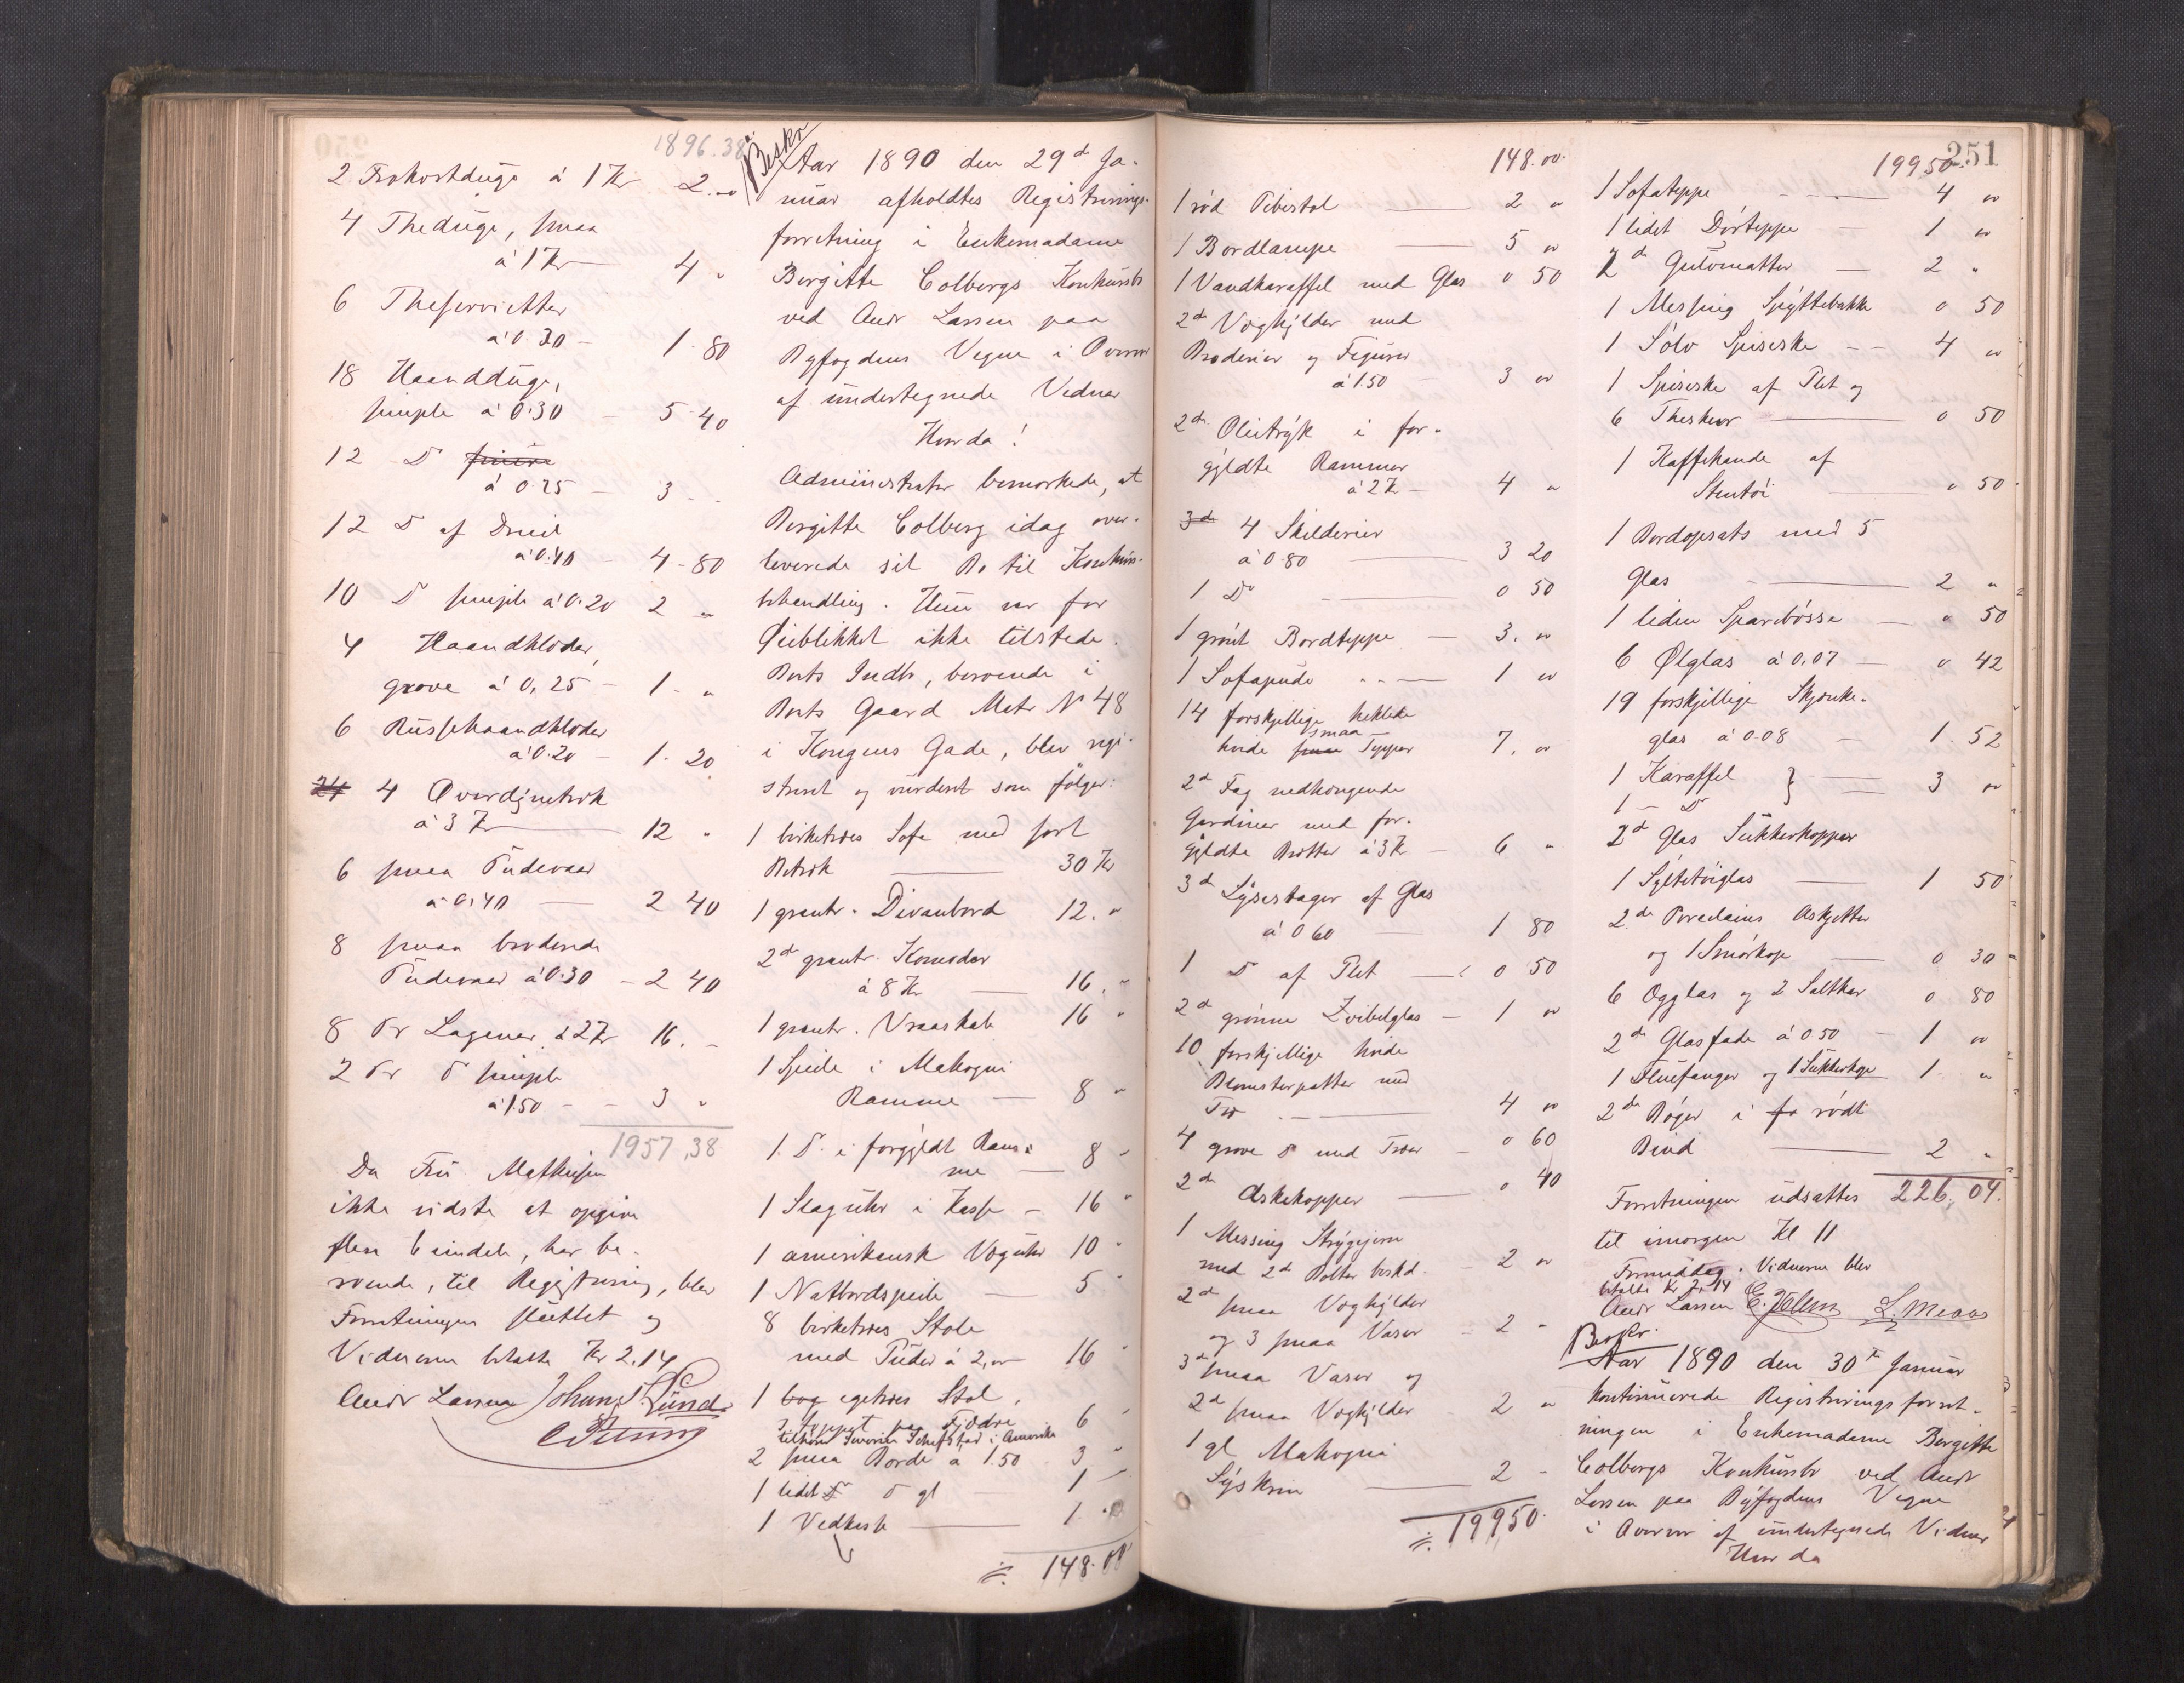 1896.38
2 Frokostduge á 1 Kr 2. "
4 Theduge, smaa
á 1 Kr 4 "
6 Theservietter
á 0.30 - 1.80
18 Haandduge,
simple á 0.30 - 5.40
12 D finere
á 0.25 - 3 -
12 D af Dreil
á 0.40 4-80
10 D simple á 0.20 2 "
4 Haandklæder,
grove á 0,25 - 1. "
6 Russehaandklæder
á 0.20 - 1.20
24 4 Overdynetræk
á 3 Kr 12 "
6 smaa Pudevaar
á 0.40 2 40
8 smaa broderede
Pudevaar á 0.30 - 2 40
8 Pr Lagener á 2 Kr 16. -
2 Pr D simple
á 1.50 - - 3 "
1957,38
Da Fru Mathiesen
ikke vidste at opgive
flere Eiendele, her be-
roende, til Registrering, blev
Forretningen sluttet og
Vidnerne betalte Kr 2.14
Andr Larsen Johan Lund
Beskr
Aar 1890 den 29d Ja-
nuar afholdtes Registrerings-
forretning i Enkemadame
Bergitte Colbergs Konkursbo
ved Andr Larsen paa
Byfogdens Vegne i Overvær
af undertegnede Vidner
Hvorda!
Administrator bemærkede, at
Bergitte Colberg idag over-
leverede sit Bo til Konkurs-
behandling. Hun var for
Øieblikket ikke tilstede.
Boets Indb, beroende i
Boets Gaard Matr No 48
i Kongens Gade, blev regi-
streret og vurderet som følger:
1 birketræes Sofa med sort
Betræk 30 Kr
1 grantr. Divanbord 12. "
2d grantr. Komoder
á 8 Kr 16. "
1 grantr. Vraaskab 16 "
1 Speile i Mahogni
Ramme 8 "
1. D. i forgyldt Ram-
me 8 "
1 Slaguhr i Kasse - 16 "
1 amerikansk Væguhr 10 "
1 Natbordspeile 5 "
8 birketræes Stole
med Puder á 2, " 16 "
1 bøg egetræes Stol,
stoppet paa Fjædre 6 "
tilhører i Amerika
2 smaa Borde á 1.50 3 "
1 lidet D D gl 1 "
1 Vedkasse 1. "
148.00
148.00.
1 rød Pibestol 2 "
1 Bordlampe 5 "
1 Vandkaraffel med Glas 0 50
2d Væghylder med
Broderier og Figurer
á 1.50 3 "
2d Olietryk i for-
gyldte Rammer
á 2 Kr - 4 "
3d 4 Skilderier
á 0.80 3 20
1 Do 0 50
1 grønt Bordteppe - 3. "
1 Sofapude 1 "
14 forskjellige heklede
hvide smaa Tepper 7. "
2d Fag nedhængende
Gardiner med for-
gyldte Bretter á 3 Kr - 6 "
3d Lysestager af Glas
á 0 60 1 80
1 D af Plet 0 50
2d grønne Zvibelglas - 1 "
10 forskjellige hvide
Blomsterpotter med
Træ 4 "
4 grove D med Træer 0 60
2d Askekopper " 40
1 Messing Strygejern
med 2d Bolter beskd. - 2 "
2d smaa Væghylder
og 3 smaa Vaser - 2 "
3d smaa Vaser og
2d smaa Væghylder - 2 "
1 gl Mahogni
Syskrin 2 -
199 50.
251
199 50
1 Sofateppe 4 "
1 lidet Dørteppe 1 "
2d Gulvmatter 2 "
1 Messing Spyttebakke 0 50
1 Sølv Spiseske 4 "
1 Spiseske af Plet og
6 Theskeer 0 50
1 Kaffekande af
Stentøi " 50
1 Bordopsats med 5
Glas 2 "
1 liden Sparebøsse " 50
6 Ølglas á 0.07 0 42
19 forskjellige Skjænke-
glas á 0.08 - 1. 52
1 Karaffel } 3 "
1 - D
2d Glas Sukkerkopper
1 Syltetøiglas 1 50
2de Porcelains Askjetter
og 1 Smørkop 0 30
6 Ægglas og 2 Saltkar 0 80
2d Glasfade á 0 50 - 1 "
1 Fluefanger og 1 Sukkerkop 1 "
2de Bøger i fo rødt
Bind 2 "
Forretningen udsattes 226,04.
til imorgen Kl 11
Formiddag. Vidnerne blev
betalte Kr 2,14
Andr Larsen E. Holm L. Meaas
Beskr.
Aar 1890 den 30te Januar
kontinuerede Registreringsforret-
ningen i Enkemadame Bergitte
Colbergs Konkursbo ved Andr
Larsen paa Byfogdens Vegne
i Overvær af undertegnede Vidner
Hvor da